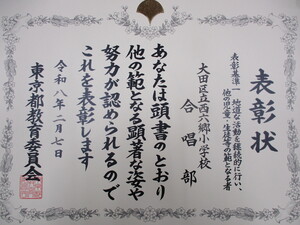 表彰状
表彰基準一 地道な活動を継続的に行い、
他の児童・生徒等の範となる者
大田区立西六郷小学校
合唱部
あなたは頭書のとおり
他の範となる顕著な姿や
努力が認められるので
これを表彰します
令和八年二月七日
東京都教育委員会